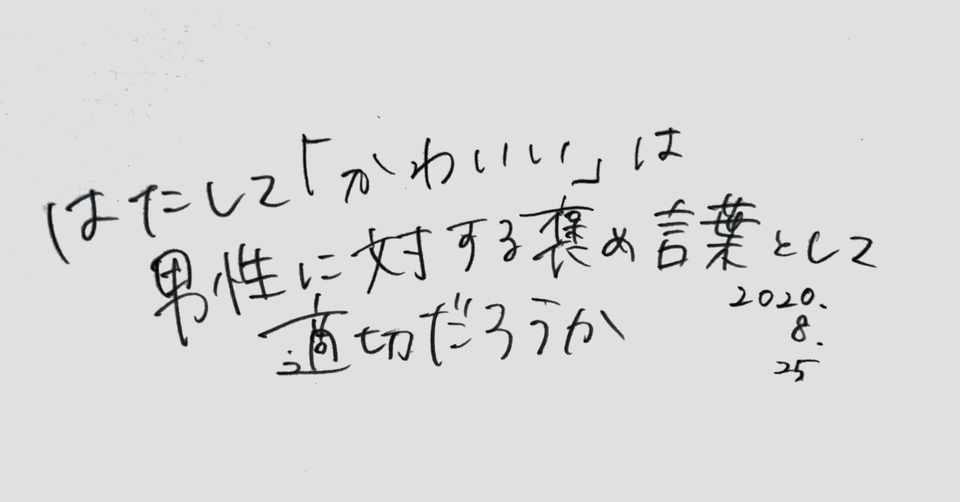 はたして「かわいい」は
男性に対する褒め言葉として
適切だろうか
2020.
8.
25